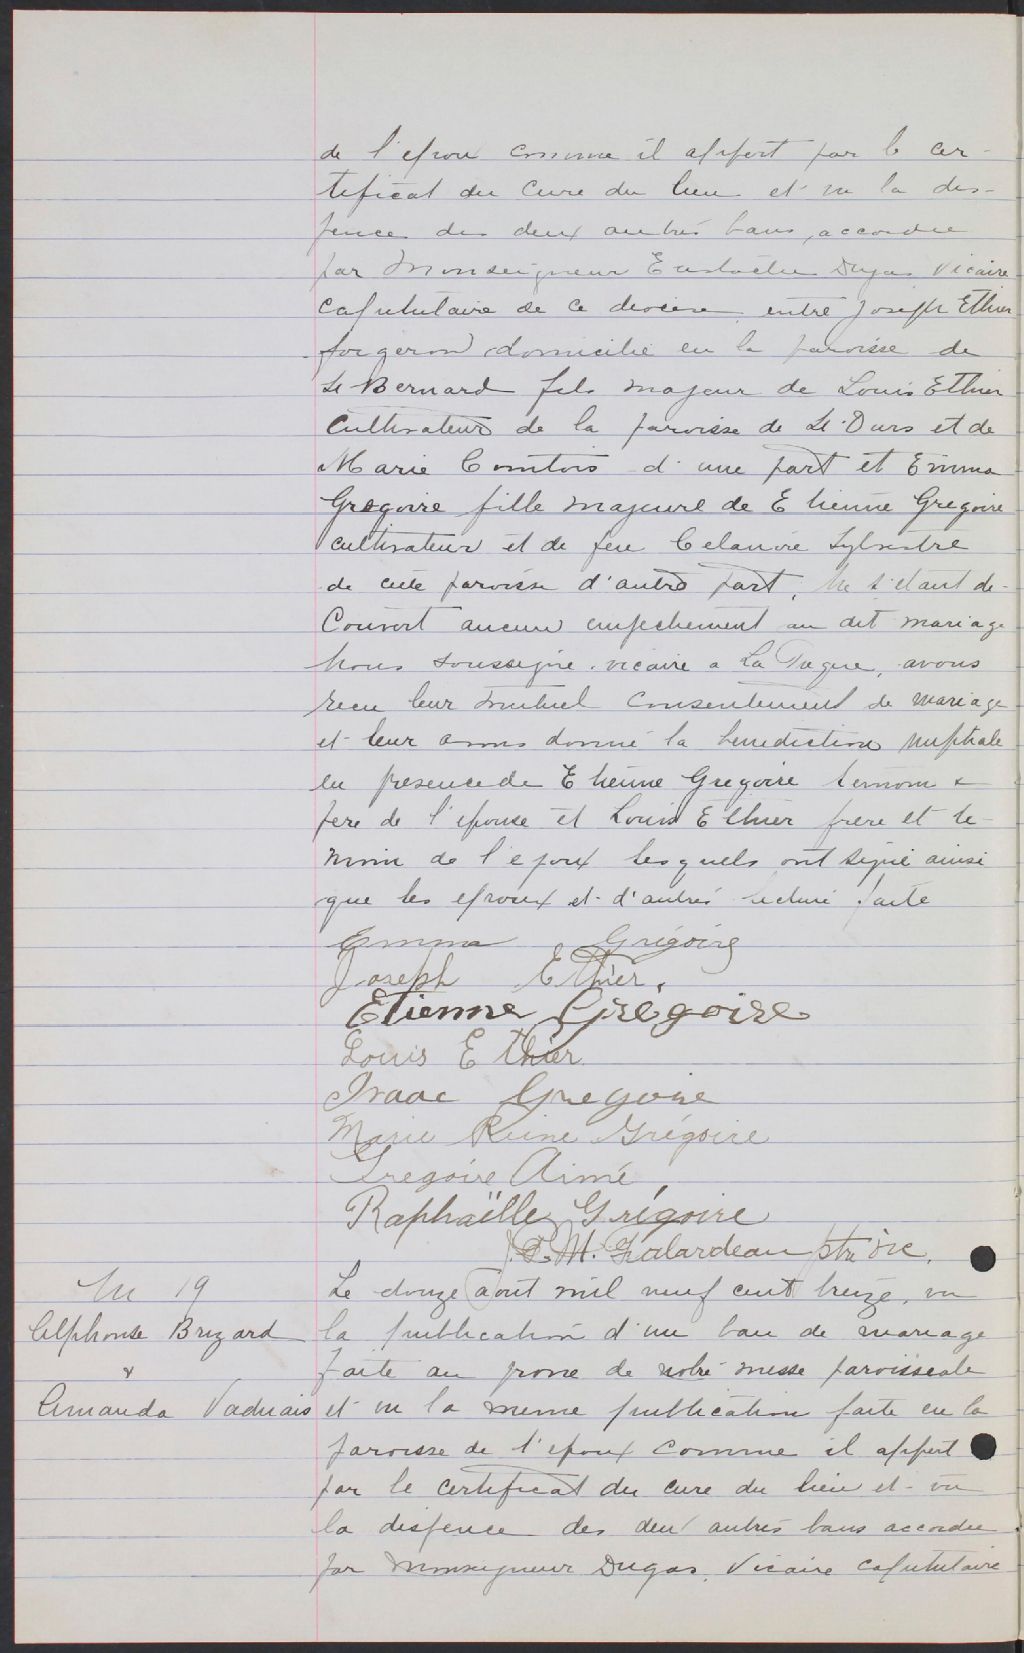 de l'epoux comme il appert par le cer-
tificat du cure du lieu et vu la dis-
pence des deux autres bans, accordee
par Monseigneur Eustache Dugas Vicaire
Capitulaire de ce diocese, entre Joseph Ethier
forgeron domicilie en la paroisse de
St Bernard fils majeur de Louis Ethier
Cultivateur de la paroisse de St. Durs et de
Marie Comtois d'une part et Emma
Gregoire fille majeure de Etienne Gregoire
cultivateur et de feu Celanire Sylvestre
de cette paroisse d'autre part, Ne s'etant de-
Couvert aucun empechement au dit mariage
Nous soussigne vicaire a La Tuque, avons
recu leur mutuel consentement de mariage
et leur avons donné la benediction nuptiale
en presence de Etienne Gregoire temoin &
pere de l'epouse et Louis Ethier frere et te-
moin de l'epoux lesquels ont signé ainsi
que les epoux et d'autres lecture faite
Emma Grégoire
Joseph Ethier.
Etienne Grégoire
Louis Ethier
Isaac Gregoire
Marie Reine Grégoire
Gregoire Aimé
Raphaëlle Grégoire
J.P.M. Galardeau ptre vic.
M 19
Alphonse Brizard
&
Amanda Vadnais
Le douze aout mil neuf cent treize, vu
la publication d'un ban de mariage
faite au prone de notre messe paroissiale
et vu la meme publication faite en la
paroisse de l'epoux comme il appert
par le certificat du cure du lieu et vu
la dispence des deux autres bans accordee
par Monseigneur Dugas, Vicaire capitulaire